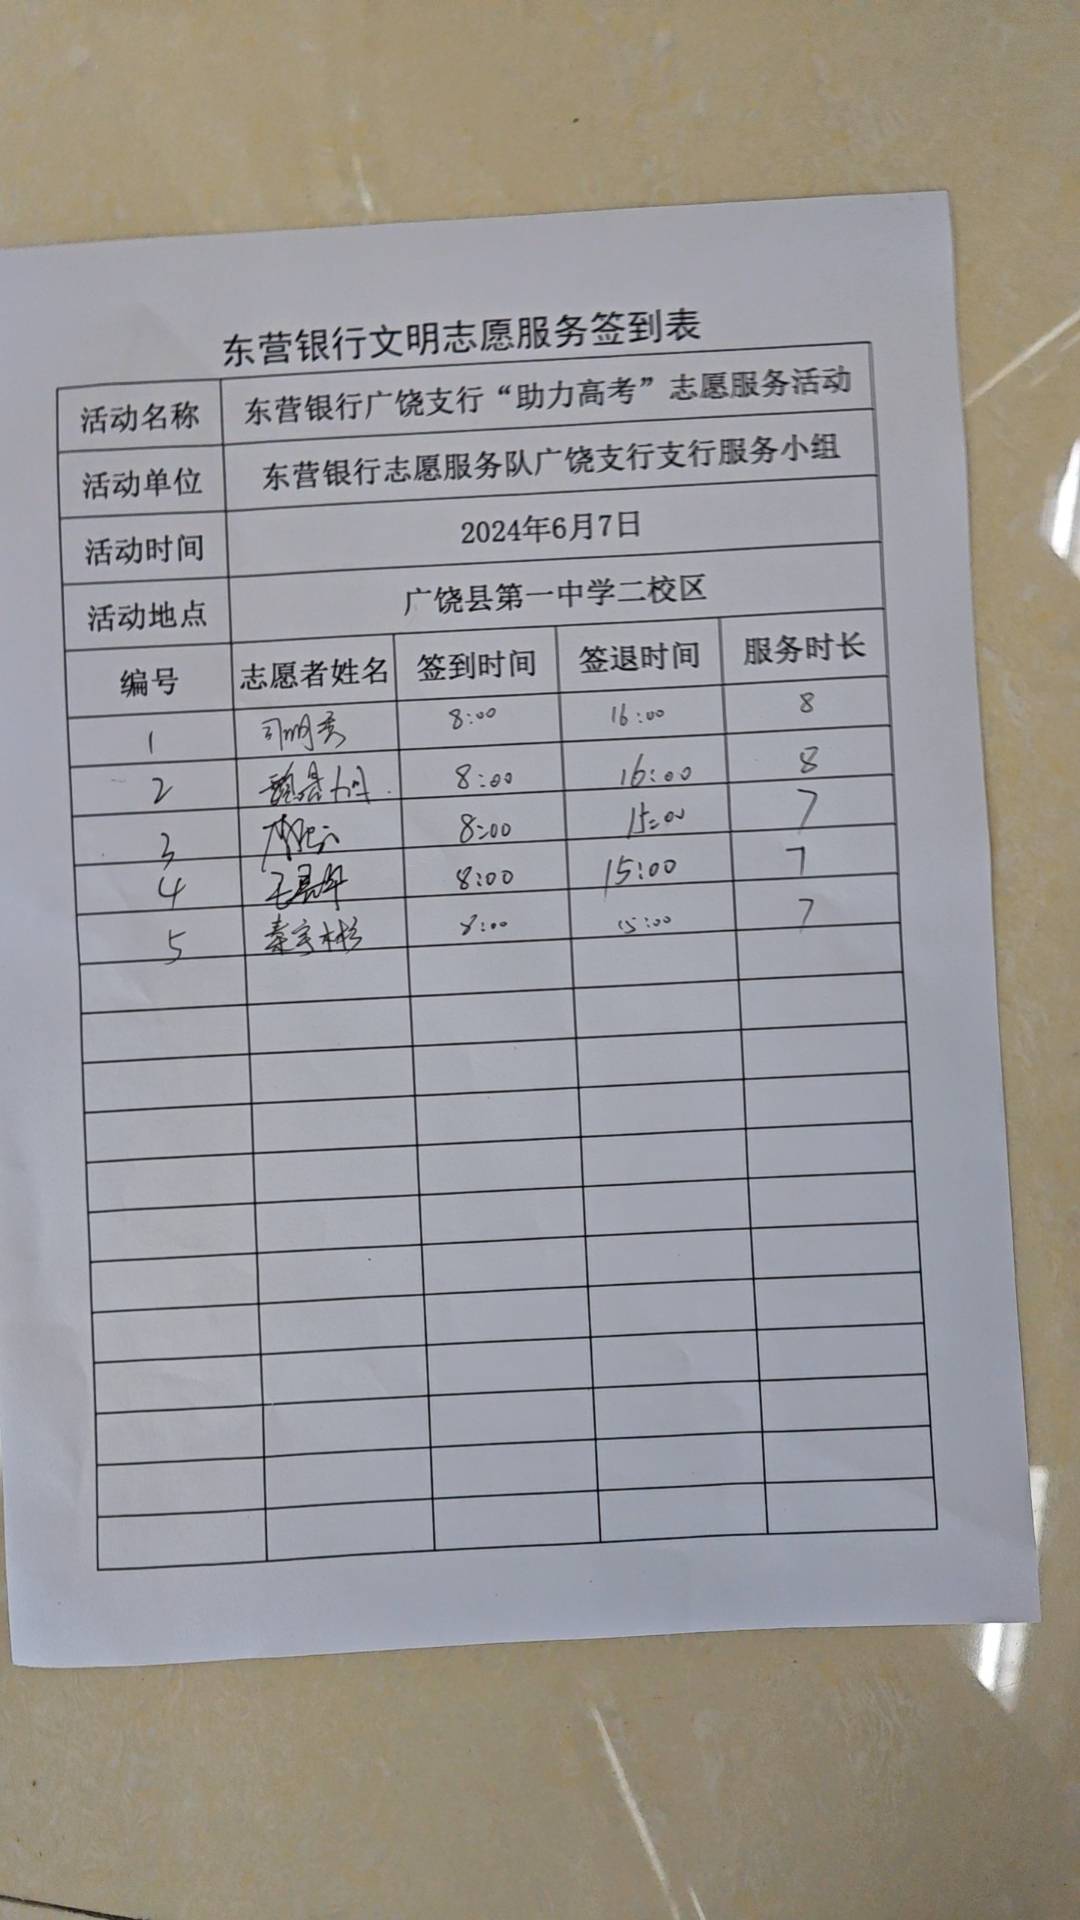 东营银行文明志愿服务签到表
活动名称 东营银行广饶支行“助力高考”志愿服务活动
活动单位 东营银行志愿服务队广饶支行支行服务小组
活动时间 2024年6月7日
活动地点 广饶县第一中学二校区
编号 志愿者姓名 签到时间 签退时间 服务时长
1 司明秀 8:00 16:00 8
2 8:00 16:00 8
3 8:00 15:00 7
4 8:00 15:00 7
5 秦宇彬 8:00 15:00 7